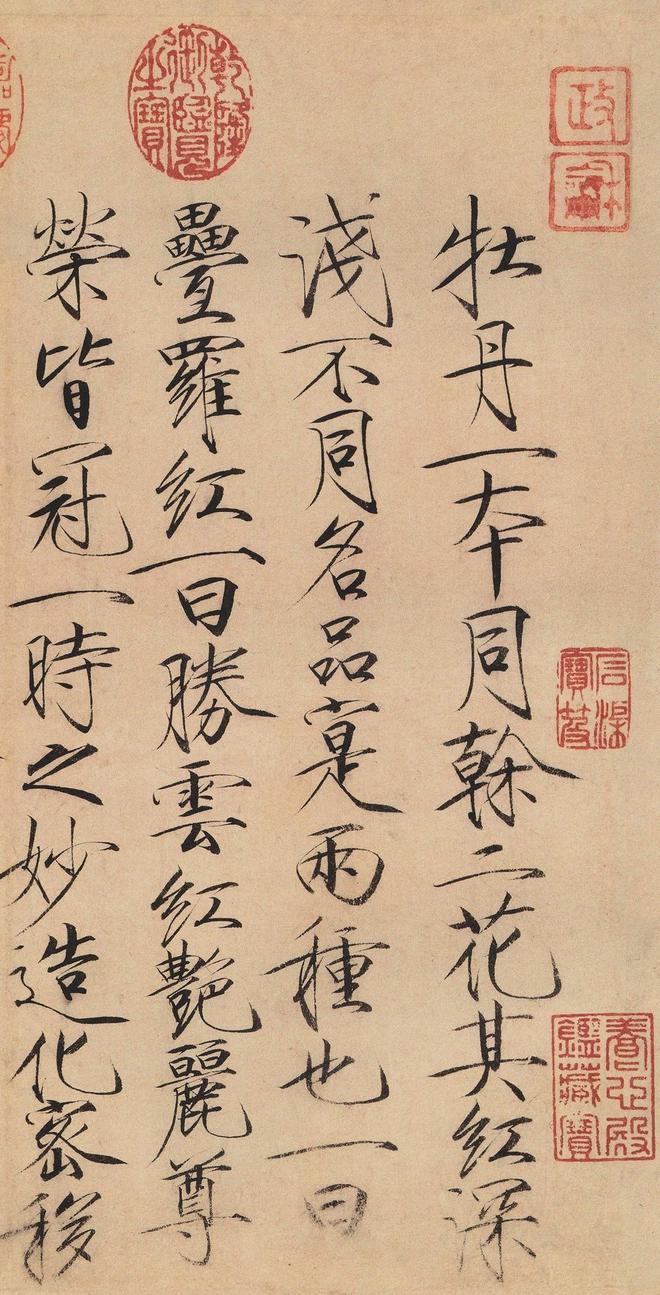 政龢
石渠寶笈
養心殿鑑藏寶
牡丹一夲同榦二花其紅深
淺不同名品寔兩種也一曰
乾隆御覽之寶
疊羅紅一曰勝雲紅艷麗尊
榮皆冠一時之妙造化密移